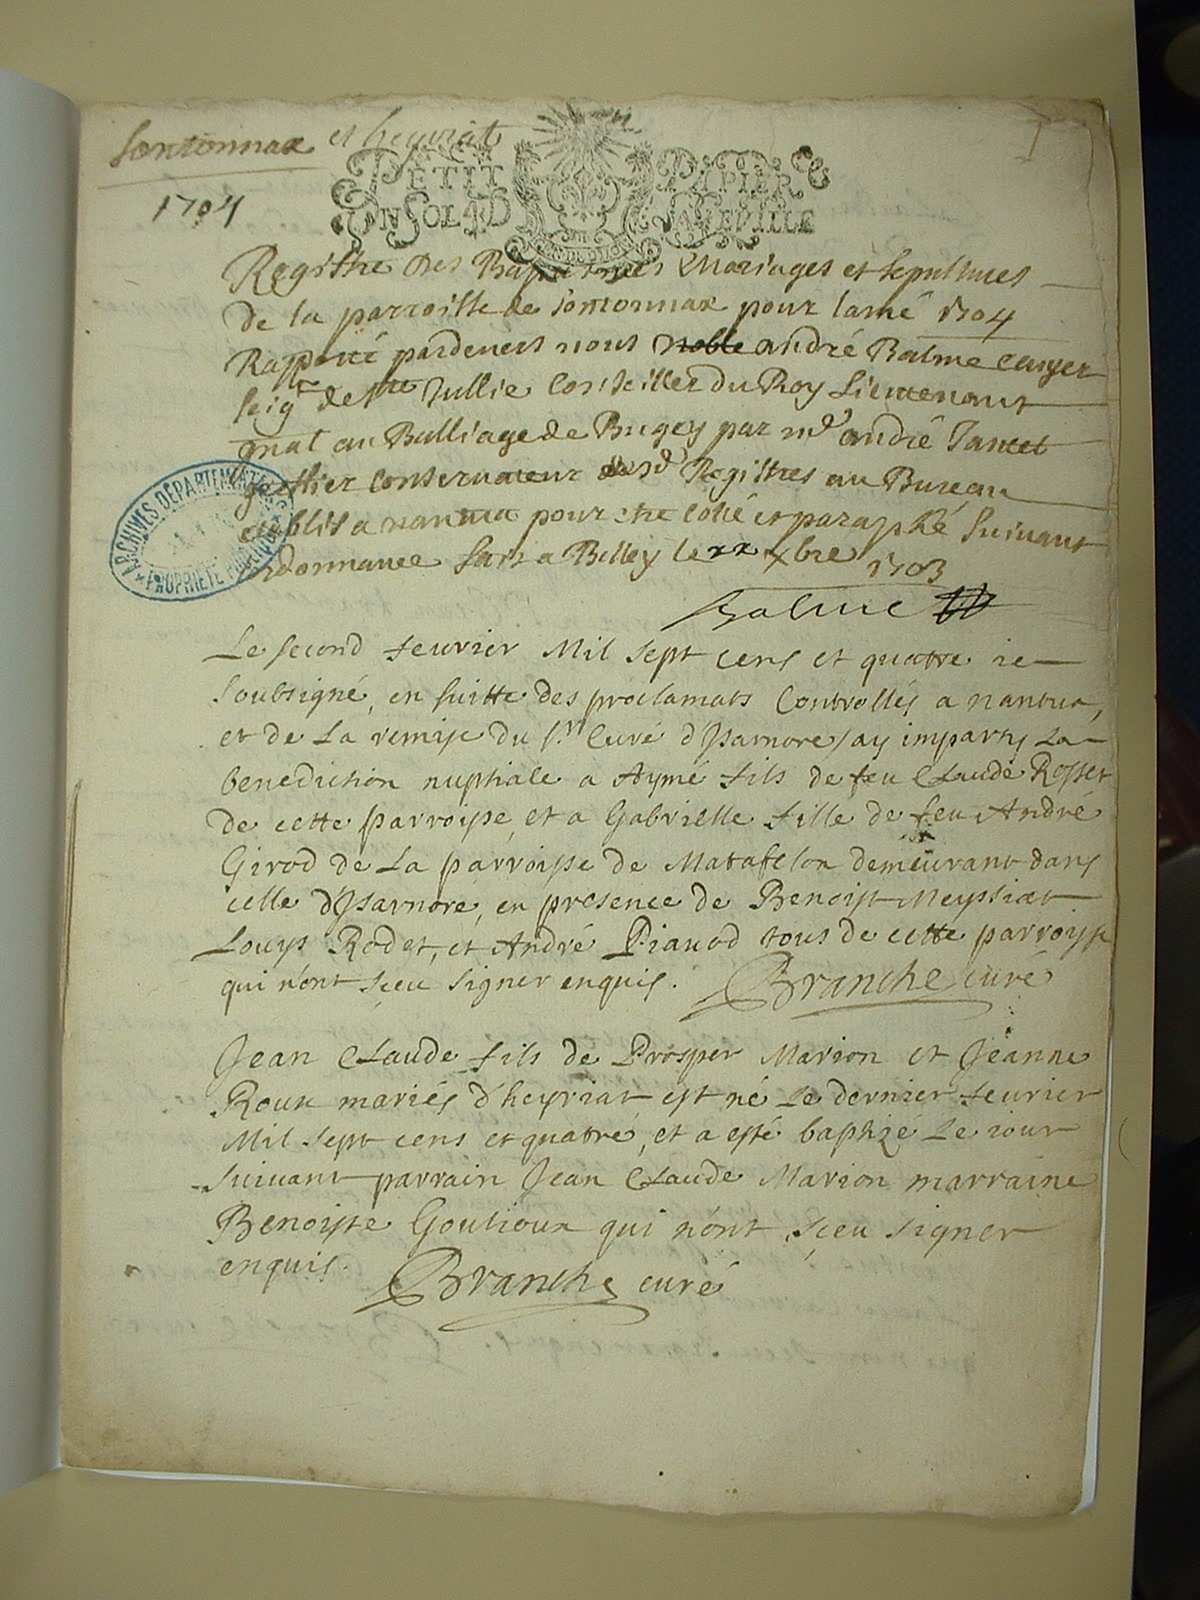 Sontonnax et heyriat
1
1704
PETIT PAPIER
UN SOL 4 D LA FEUILLE
GENERALITE DE DIJON
Registre des Baptesmes Mariages et sepultures
de la parroisse de Sontonnax pour lannée 1704
Rapporté pardevers nous noble andré Balme escuyer
seigr de Ste Jullie Conseiller du Roy Lieutenant
gnal au Balliage de Bugey par me andré Jantet
greffier conservateur desd Registres au Bureau
establis a nantua pour estre cotté et paraphé suivant
ordonnance fait a Belley le xx xbre 1703
Balme
ARCHIVES DÉPARTEMENTALES
* PROPRIÉTÉ PUBLIQUE *
Le second feurier Mil sept cens et quatre ie
soubsigné, en suitte des proclamats Controllés a nantua,
et de La remise du Sr. Curé d'Isarnore, ay imparty La
benediction nuptiale a Aymé fils de feu Claude Rosset
de cette parroisse, et a Gabrielle fille de feu André
Girod de La parroisse de Matafelon demeurant dans
celle d'Isarnore, en presence de Benoist Meyssiat
Louys Rodet, et André Pianod tous de cette parroisse
qui n'ont sçeu signer enquis. Branche curé
Jean Claude fils de Prosper Marion et Jeanne
Roux mariés d'heyriat est né Le dernier feurier
Mil sept cens et quatre, et a esté baptizé Le iour
suiuant parrain Jean Claude Marion marraine
Benoiste Goutioux qui n'ont sçeu signer
enquis. Branche curé